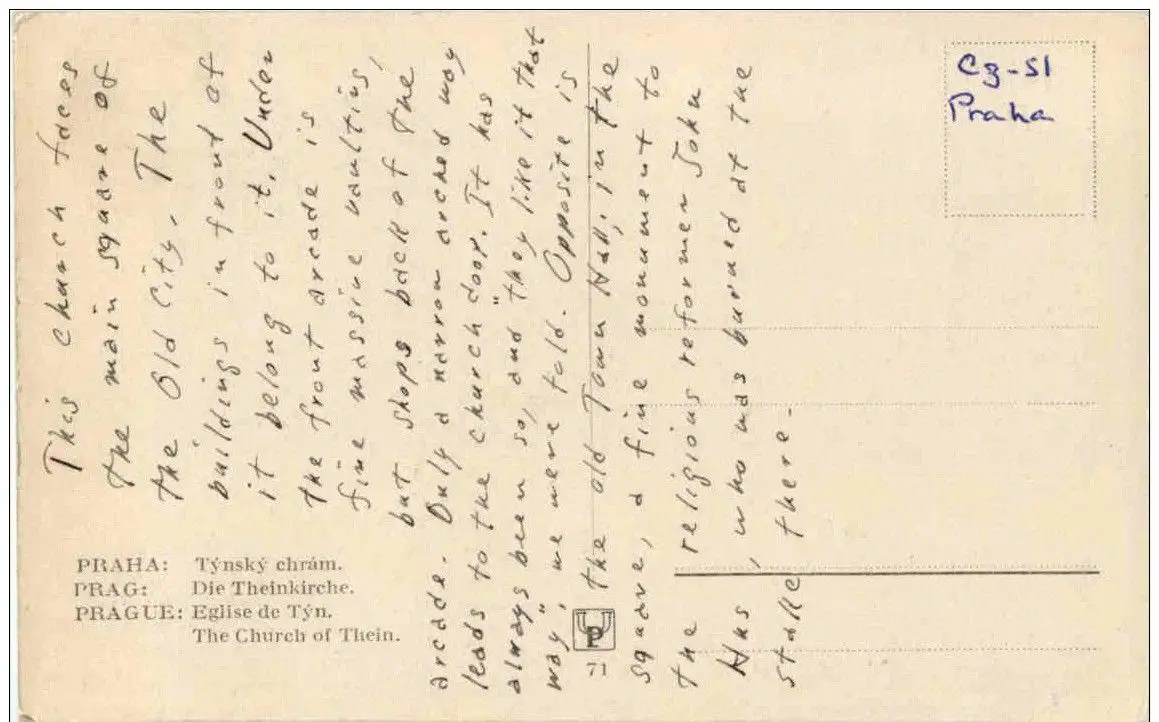 This church faces
the main square of
the Old City. The
buildings in front of
it belong to it. Under
the front arcade is
fine massive vaulting,
but shops back of the
arcade. Only a narrow arched way
leads to the church door. It has
always been so, and "they like it that
way", we were told. Opposite is
the old Town Hall; in the
square, a fine monument to
the religious reformer John
Hus, who was burned at the
stake there.
Cz-51
Praha
PRAHA: Týnský chrám.
PRAG: Die Theinkirche.
PRAGUE: Eglise de Týn.
The Church of Thein.
71